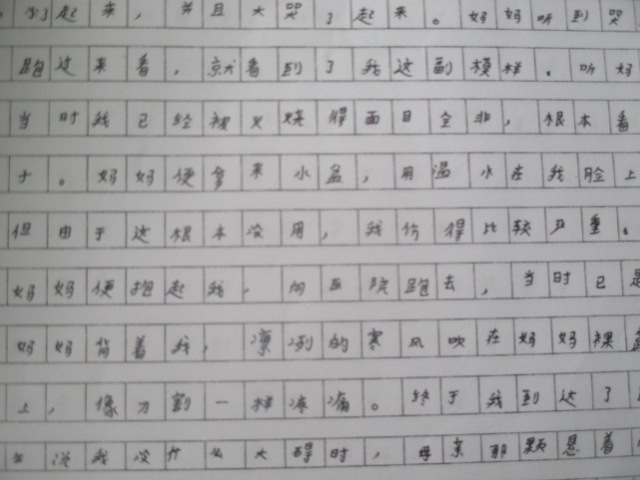 起来，并且大哭了起来。妈妈听到哭
跑过来看，就看到了我这副模样。听妈
当时我已经被火烧得面目全非，根本看
。妈妈便拿来水盆，用温水在我脸上
但由于这根本没用，我伤得比较严重。
妈妈便抱起我，向医院跑去，当时已是
妈妈背着我，凛冽的寒风吹在妈妈裸露
上，像刀割一样疼痛。终于我到达了
说我没什么大碍时，母亲那颗悬着